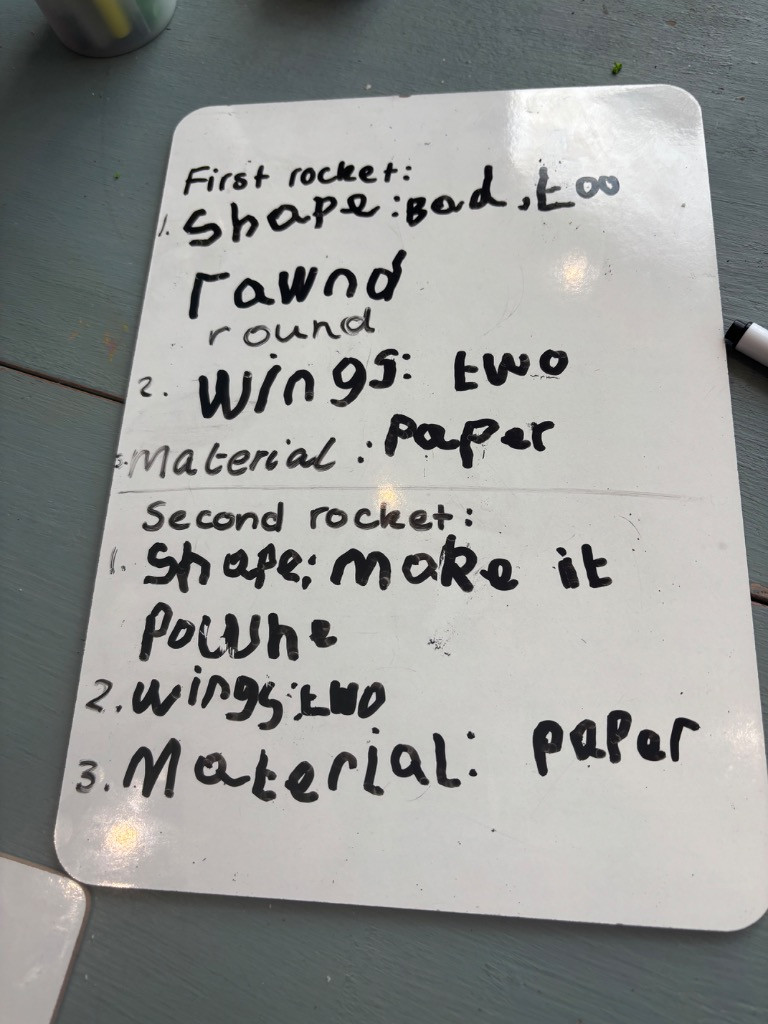 First rocket:
1. Shape: Bad, too
rawnd
round
2. Wings: two
3. Material: paper
Second rocket:
1. Shape: make it
powhe
2. wings: two
3. Material: paper